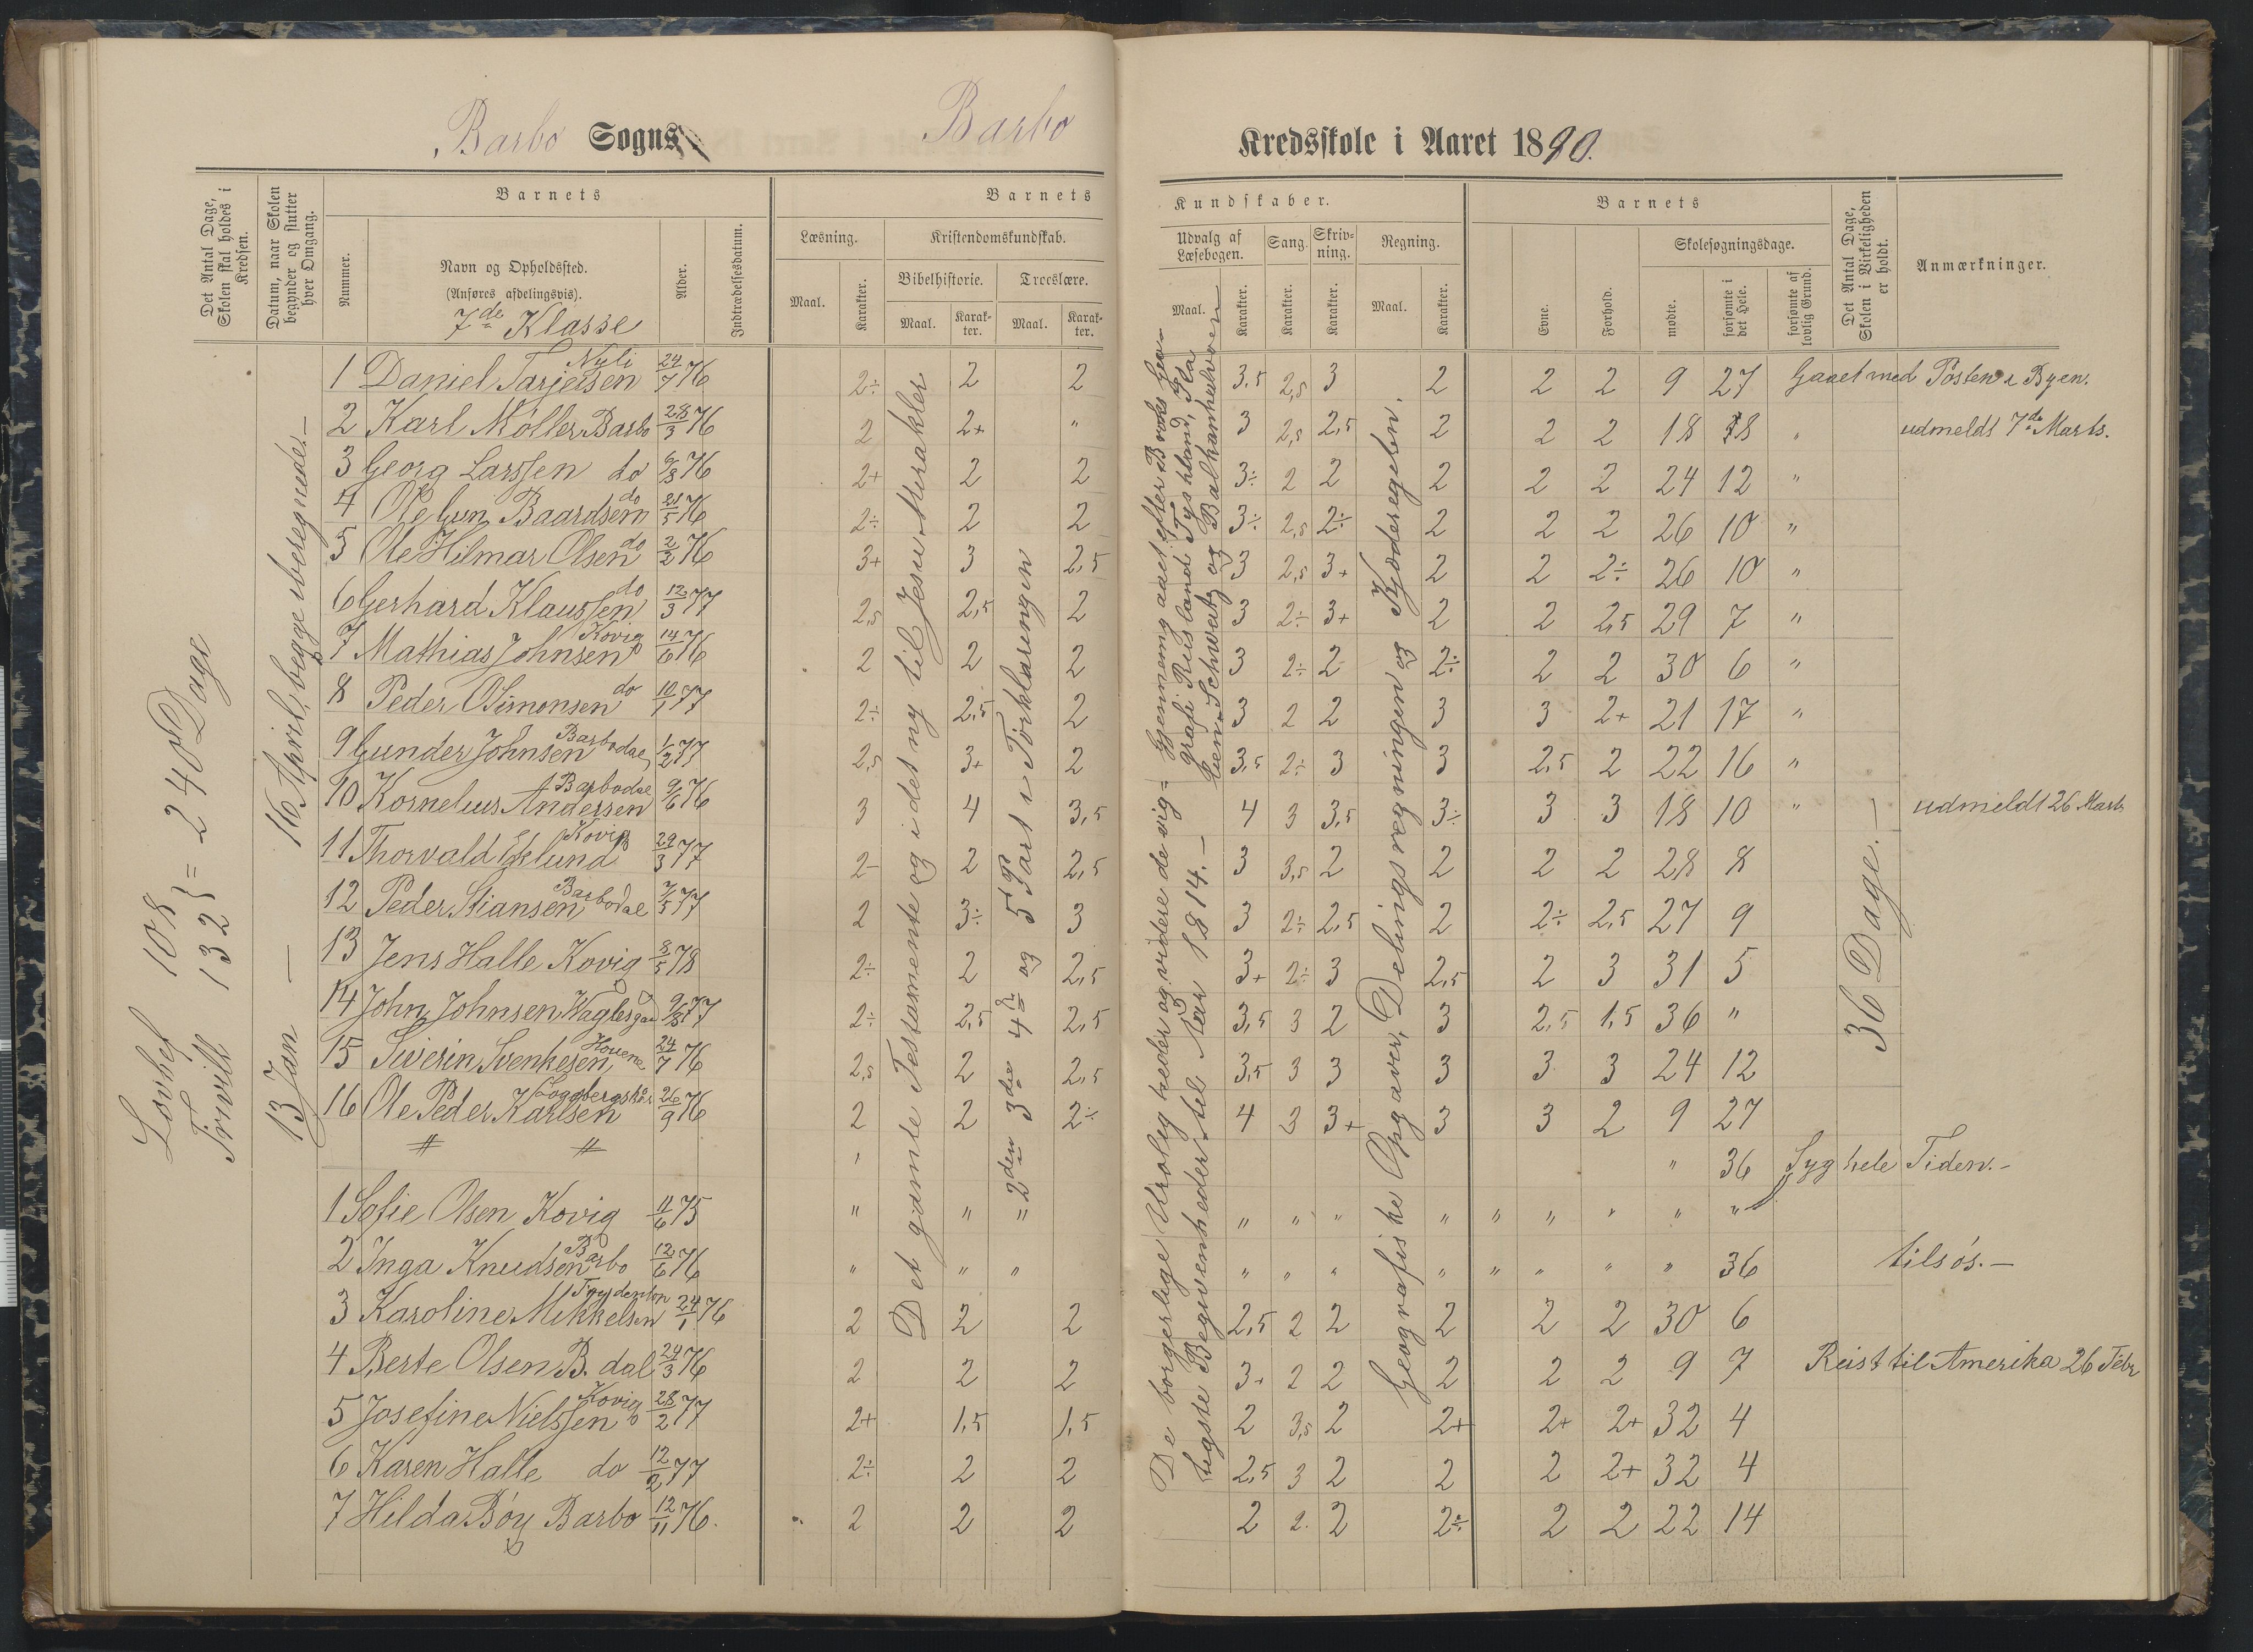 Barbo Sogns Barbo Kredsskole i Aaret 1890.
Det Antal Dage, Skolen skal holdes i Kredsen.
Datum, naar Skolen begynder og slutter hver Omgang.
Barnets
Nummer.
Navn og Opholdssted.
(Anføres afdelingsvis).
7de Klasse
Alder.
Indtrædelsesdatum.
Barnets Kundskaber.
Læsning.
Maal.
Karakter.
Kristendomskundskab.
Bibelhistorie.
Maal.
Karakter.
Troeslære.
Maal.
Karakter.
Udvalg af Læsebogen.
Maal.
Karakter.
Sang.
Karakter.
Skrivning.
Karakter.
Regning.
Maal.
Karakter.
Barnets
Evne.
Forhold.
Skolesøgningsdage.
mødte.
forsømte i det Hele.
forsømte af lovlig Grund.
Det Antal Dage, Skolen i Virkeligheden er holdt.
Anmærkninger.
Lovbef 108
Frivill 132 } = 240 Dage
13 Jan — 16 April, begge iberegnede.—
Det gamle Testamente og i det ny til Jesu Mirakler
= 2den 3die 4de og 5te Part i Forklaringen
De borgerlige Urolig heder og videre de vig=
tigste Begivenheder til Aar 1814.—
Gjennemg aaet efter Broks Geo-
grafi: Rusland, Tyskland, Ita
lien, Schweitz og Balkanhalvøen
Geografiske Opgaver, Delingsregningen og Kjæderegelen.
36 Dage.—
1 Daniel Tarjeisen Nyli 24/7 76 2÷ 2 2 3,5 2,5 3 2 2 2 9 27 Gaaet med Posten i Byen.
2 Karl Møller Barbo 28/3 76 2 2+ " 3 2,5 2,5 2 2 2 18 18 " udmeldt 7de Marts.
3 Georg Larssen do 9/8 76 2+ 2 2 3÷ 2 2 2 2 2 24 12 "
4 Ole Gun. Baardsen do 21/5 76 2÷ 2 2 3÷ 2,5 2÷ 2 2 2 26 10 "
5 Ole Hilmar Olsen do 2/2 76 3+ 3 2,5 3 2,5 3+ 2 2 2÷ 26 10 "
6 Gerhard Klaussen do 12/3 77 2,5 2,5 2 3 2÷ 3+ 2 2 2,5 29 7 "
7 Mathias Johnsen Kovig 14/6 76 2 2 2 3 2÷ 2 2÷ 2 2 30 6 "
8 Peder O Simonsen do 10/1 77 2÷ 2,5 2 3 2 2 3 3 2+ 21 17 "
9 Gunder Johnsen Barbodal 1/2 77 2,5 3+ 2 3,5 2÷ 3 3 2,5 2 22 16 "
10 Kornelius Andersen Barbodal 9/6 76 3 4 3,5 4 3 3,5 3÷ 3 3 18 10 " udmeldt 26 Marts
11 Thorvald Eklund Kovig 29/3 77 2- 2 2,5 3 3,5 2 2 2 2 28 8
12 Peder Stiansen Barbodal 7/5 77 2 3÷ 3 3 2÷ 2,5 2 2÷ 2,5 27 9
13 Jens Halle Kovig 8/5 78 2÷ 2 2,5 3+ 2÷ 3 2,5 2 3 31 5
14 John Johnsen Waglesgar 9/8 77 2÷ 2,5 2,5 3,5 3 2 3 2,5 1,5 36 "
15 Siverin Svenkesen Hovene 24/7 76 2,5 2 2,5 3,5 3 3 3 3 3 24 12
16 Ole Peder Karlsen Loggbergskar 26/9 76 2 2 2÷ 4 3 3+ 3 3 2 9 27
" 36 Syg hele Tiden.-
1 Sofie Olsen Kovig 11/6 75 " " " " " " " " " " " "
2 Inga Knudsen Barbo 12/6 76 " " " " " " " " " " " 36 tilsøs.—
3 Karoline Mikkelsen 24/1 76 2 2 2 2,5 2 2 2 2 2 30 6
4 Berte Olsen B. dal 24/3 76 2 2 2 3+ 2 2 2 2 2 9 7 Reist til Amerika 26 Febr
5 Josefine Nielssen Kovig 28/2 77 2+ 1,5 1,5 2 3,5 2 2+ 2+ 2+ 32 4
6 Karen Halle do 12/2 77 2÷ 2 2 2,5 3 2 2 2 2+ 32 4
7 Hilda Bøy Barbo 12/11 76. 2 2 2 2 2. 2 2÷ 2 2 22 14